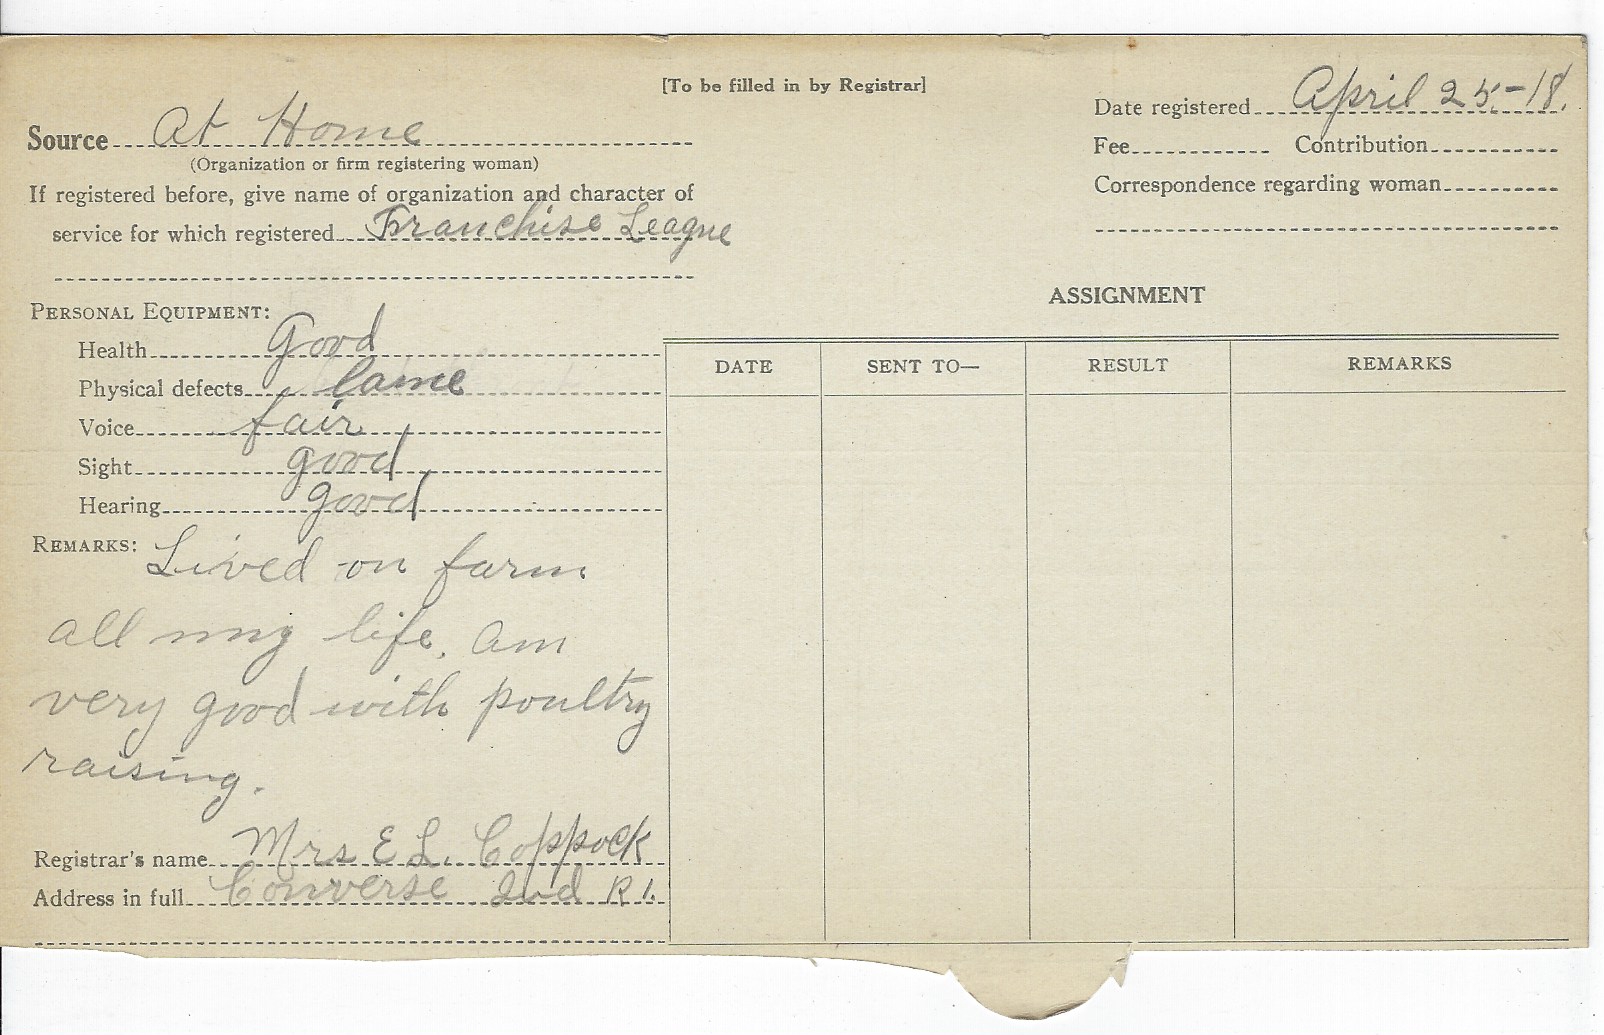 [To be filled in by Registrar]
Source At Home
(Organization or firm registering woman)
If registered before, give name of organization and character of
service for which registered Franchise League
Date registered April 25-18.
Fee Contribution
Correspondence regarding woman
PERSONAL EQUIPMENT:
Health Good
Physical defects lame
Voice fair
Sight good
Hearing good
REMARKS: Lived on farm
all my life. Am
very good with poultry
raising.
Registrar's name Mrs E L. Coppock
Address in full Converse Ind R 1.
ASSIGNMENT
DATE SENT TO— RESULT REMARKS